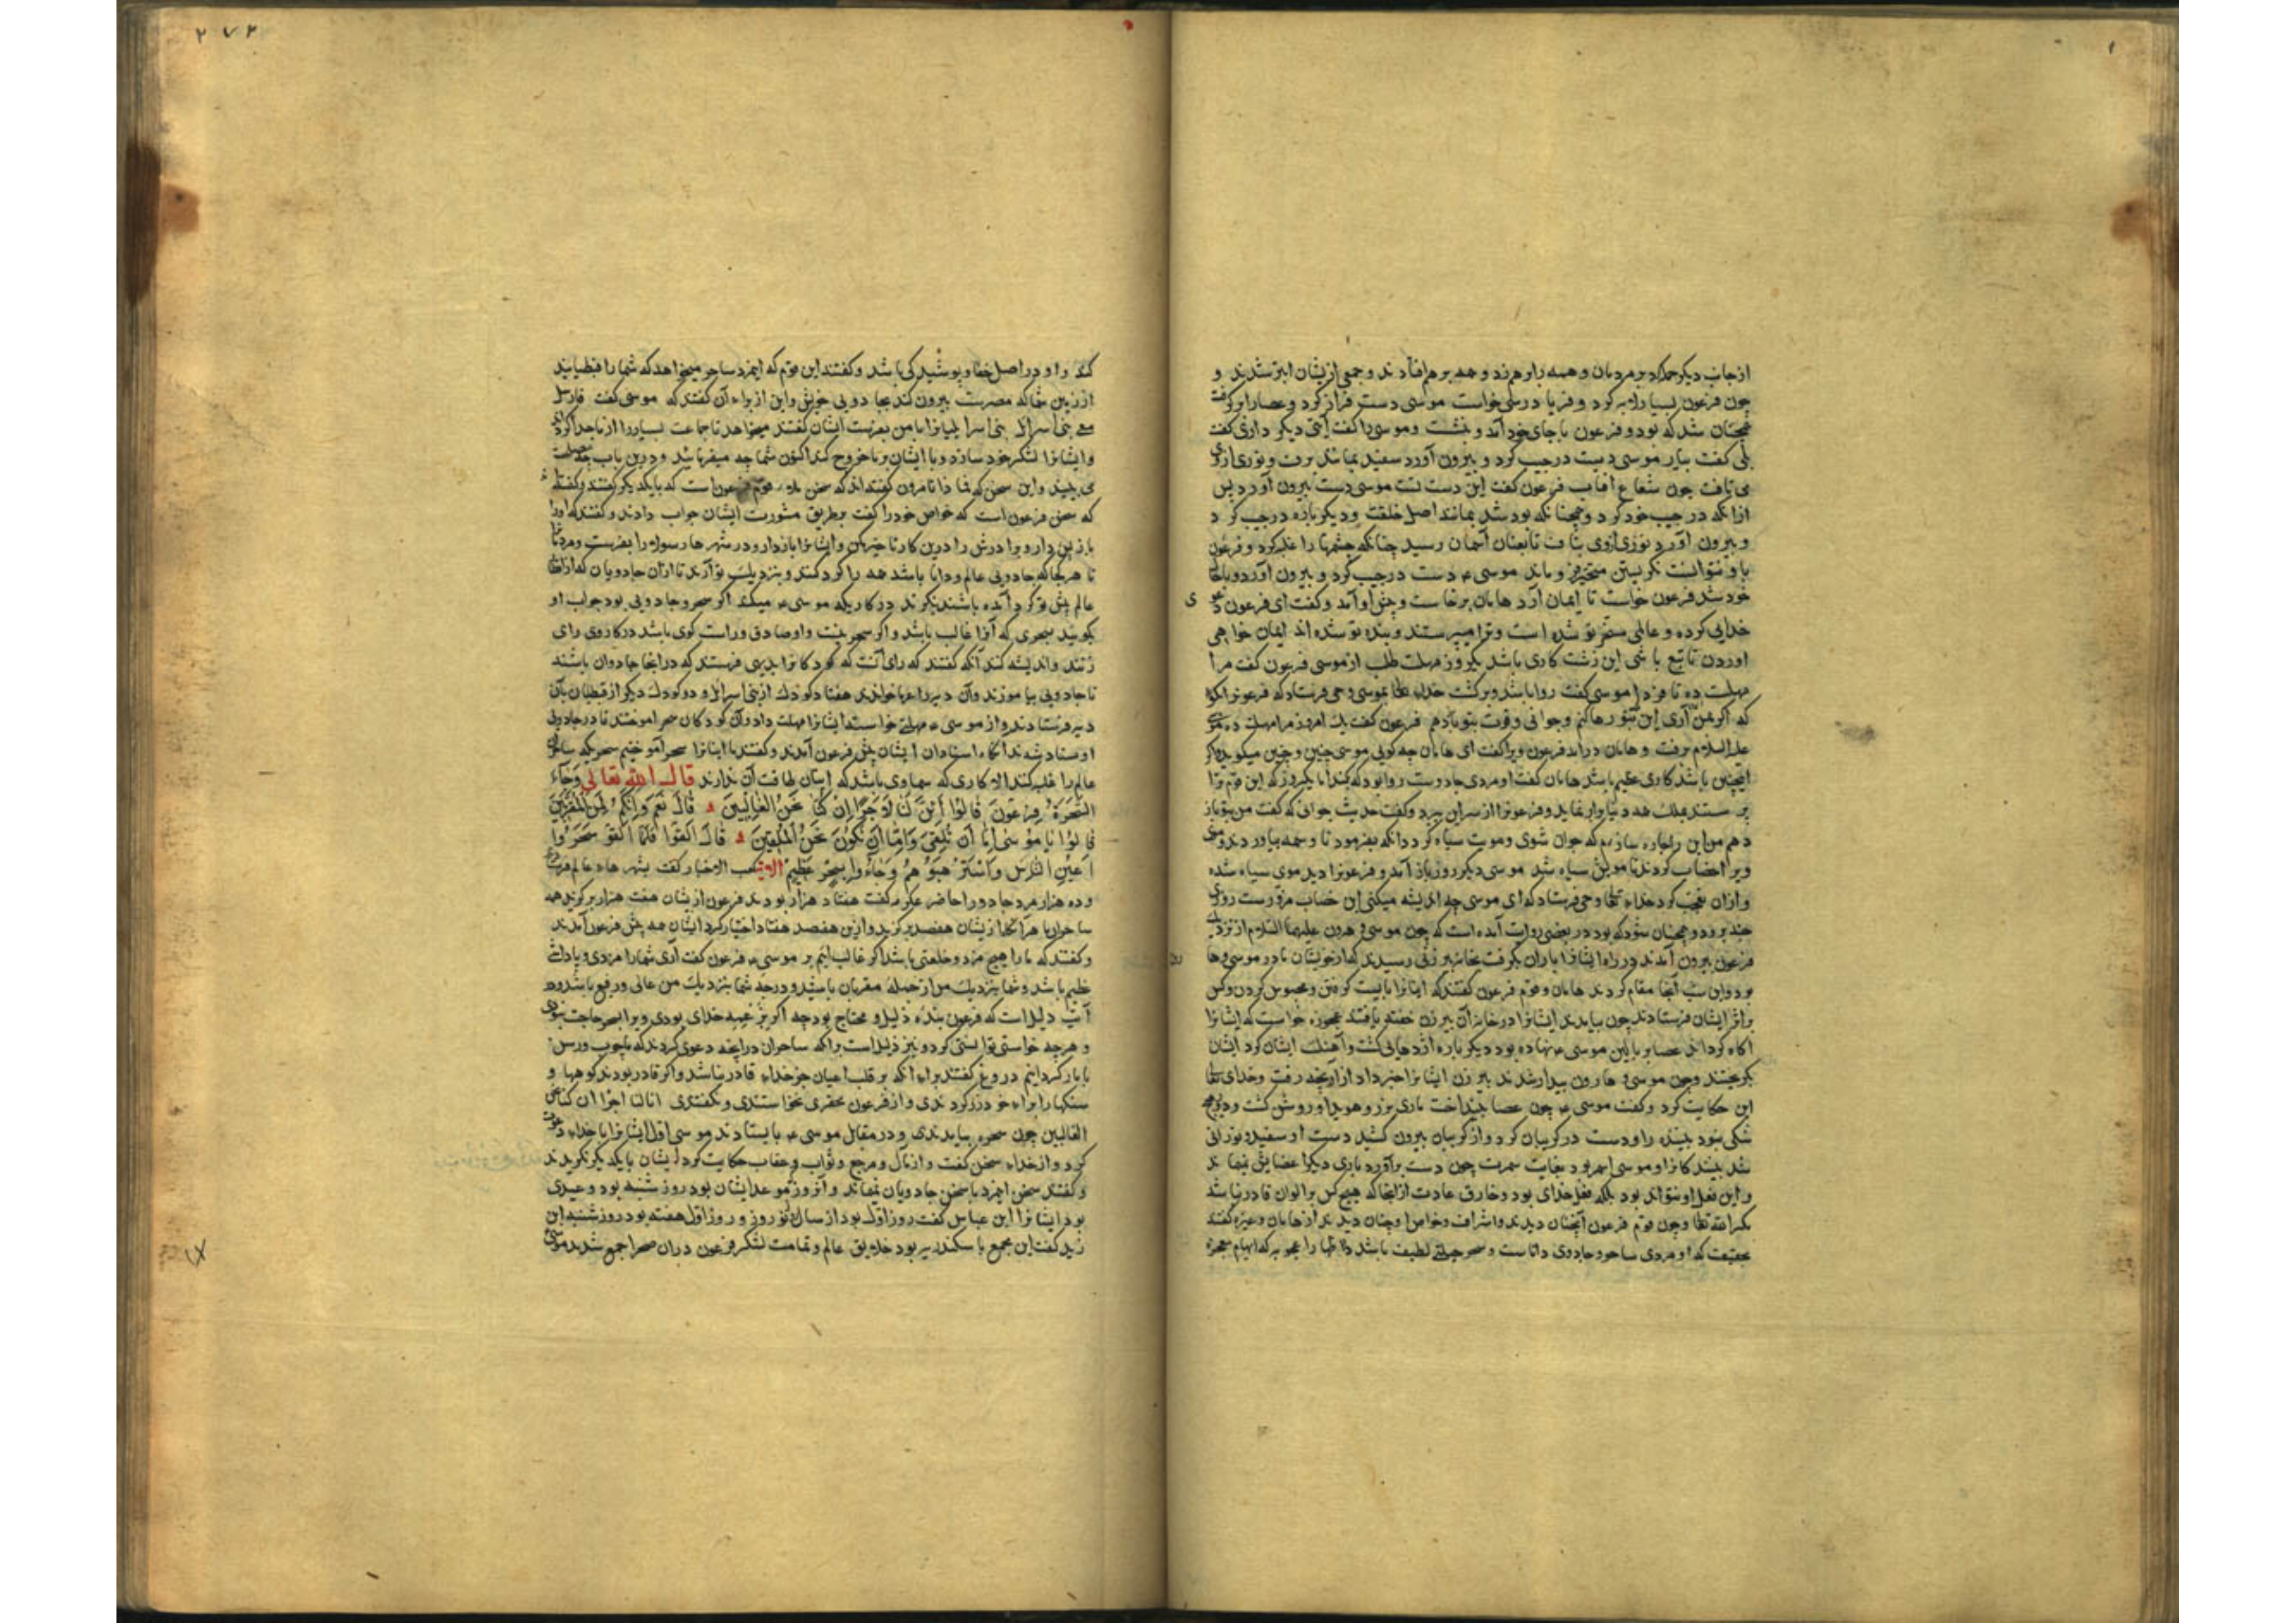 از جانب دیگر حمله کرد بر مردمان و همه را برهم زد و همه برهم افتادند و جمعی ازیشان ابتر شدند و
چون فرعون بسیار لابه کرد و فریاد رسی خواست موسی دست فراز کرد و عصا را برگرفت
همچنان شد که بود و فرعون با جای خود آمد و بنشست و موسی را گفت آیتی دیگر داری گفت
بلی گفت بیار موسی دست در جیب کرد و بیرون آورد سفید بمانند برف و نوری ازو
می تافت چون شعاع افتاب فرعون گفت این دست تست موسی دست بیرون آورد پس
ازانکه در جیب خود کرد و همچنانکه بود شد بمانند اصل خلقت و دیگرباره در جیب کرد
و بیرون آورد نوری ازوی بتافت تا بعنان آسمان رسید چنانکه چشمها را غلبه کرد و فرعون
باو نتوانست نگریستن متحیر فرو ماند موسی ع دست در جیب کرد و بیرون آورد و با حال
خود شد فرعون خواست تا ایمان آرد هامان برخاست و پیش او آمد و گفت ای فرعون دعوی
خدایی کرده و عالمی مسخر تو شده است و ترا میپرستند و بنده تو شده اند ایمان خواهی
اوردن تا تبع باشی این زشت کاری باشد یکروز مهلت طلب از موسی فرعون گفت مرا
مهلت ده تا فردا موسی گفت روا باشد و برگشت خدای تعالی بموسی وحی فرستاد که فرعونرا بگو
که اگر بمن آری این بتو رها کنم و جوانی و قوت بتو بازدهم فرعون گفت یک امروز مرا مهلت ده موسی
علیه السلام برفت و هامان درآمد فرعون ویرا گفت ای هامان چه گویی موسی چنین و چنین میگوید اگر
اینچنین باشد کاری عظیم باشد هامان گفت او مردی جادوست روا بود که خدا یکروز که این قوم ترا
پرستند بملک همه دنیا و فرعونرا از سر این ببرد و گفت حدیث جوانی که گفت من بتو باز
دهم من این را چاره سازم که جوان شوی و مویت سیاه گردد آنکه بفرمود تا وسمه بیاوردند و موی
ویرا خضاب کردند تا مویش سیاه شد موسی دیگر روز باز آمد و فرعونرا دید موی سیاه شده
و ازان تعجب کرد خدای تعالی وحی فرستاد که ای موسی چه اندیشه میکنی این خضاب مزورست روزی
چند برود و همچنان شود که بود در بعضی روایت آمده است که چون موسی و هرون علیهما السلام از نزدیک
فرعون بیرون آمدند در راه ایشانرا باران بگرفت بخانه پیرزنی رسیدند که از خویشان مادر موسی
بود و این شب آنجا مقام کردند هامان و قوم فرعون گفتند که اینانرا بایست گرفتن و محبوس کردن و کس
براثر ایشان فرستادند چون بیامدند ایشانرا در خانه آن پیر زن خفته یافتند عجوزه خواست که ایشانرا
آگاه گرداند عصا بر بالین موسی ع نهاده بود دیگرباره اژدهایی گشت و آهنگ ایشان کرد ایشان
بگریختند و چون موسی و هارون بیدار شدند پیر زن ایشانرا خبر داد از آنچه رفت و خدای تعالی
این حکایت کرد و گفت موسی ع چون عصا بینداخت ماری بزرگ و هویدا و روشن گشت و در وی هیچ
شکی نبود بیننده را و دست در گریبان کرد و از گریبان بیرون کشید دست او سفید و نورانی
شد بینندگانرا و موسی اسمر بود بغایت سمرت چون دست برآورد باری دیگر اعضایش نماند
و این فعل او نتواند بود بلکه فعل خدای بود و خارق عادت ازانجا که هیچ کس بر الوان قادر نباشد
مگر الله تعالی و چون قوم فرعون آنچنان دیدند و اشراف و خواص او چنان دیدند از هامان و غیره گفتند
بحقیقت که او مردی ساحر و جادوی داناست و سحر حیلتی لطیف باشد که ایهام معجزه
کند و او در اصل خفا و پوشیدگی باشد و گفتند این قوم که اینمرد ساحر میخواهد که شما را قبطیانید
از زمین شما که مصرست بیرون کند بجادویی خویش و این از برای آن گفتند که موسی گفت فارسل
معی بنی اسرائیل بنی اسرائیلیانرا با من بفرست ایشان گفتند میخواهد تا جماعت بسیار را از ما جدا کرده
و ایشانرا لشکر خود سازد و با ایشان بر ما خروج کند اکنون شما چه میفرمایید و درین باب چه مصلحت
می بینید و این سخن که فما ذا تامرون گفته اند که سخن قوم فرعون است که با یکدیگر گفتند و گفته اند
که سخن فرعون است که خواص خود را گفت بطریق مشورت ایشان جواب دادند و گفتند که او را
باز پس دار و برادرش را درین کار تاخیر کن و ایشانرا بازدار و در شهرها رسولانرا بفرست و مردم را
تا هر کجا که جادویی عالم و دانا باشد همه را گرد کنند و بنزدیک تو آرند تا ازان جادویان که از اطراف
عالم پیش تو گرد آمده باشند بنگرند در کاریکه موسی ع میکند اگر سحر و جادویی بود جواب او
بگویند بسحری که آنرا غالب باشد و اگر سحر نیست و او صادق و راست گوی باشد در کار وی رای
زنند و اندیشه کنند آنکه گفتند که رای آنست که کودکانرا بدیهی فرستند که درانجا جادوان باشند
تا جادویی بیاموزند و آن دیه را خوانند هفتاد کودک از بنی اسرائیل و دو کودک دیگر از قبطیان بآن
دیه فرستادند و از موسی ع مهلتی خواستند ایشانرا مهلت داد و آن کودکان سحر آموختند تا در جادویی
اوستاد شدند آنگاه استادان ایشان پیش فرعون آمدند و گفتند ما اینانرا سحر آموختیم سحریکه ساحران
عالم را غلبه کنند الا کاری که سماوی باشد که ایشان طاقت آن ندارند قال الله تعالی وَجَاءَ
السَّحَرَةُ فِرْعَوْنَ قَالُوا أَئِنَّ لَنَا لَأَجْرًا إِنْ كُنَّا نَحْنُ الْغَالِبِينَ قَالَ نَعَمْ وَإِنَّكُمْ لَمِنَ الْمُقَرَّبِينَ
قَالُوا يَا مُوسَى إِمَّا أَنْ تُلْقِيَ وَإِمَّا أَنْ نَكُونَ نَحْنُ الْمُلْقِينَ قَالَ أَلْقُوا فَلَمَّا أَلْقَوْا سَحَرُوا
أَعْيُنَ النَّاسِ وَاسْتَرْهَبُوهُمْ وَجَاءُوا بِسِحْرٍ عَظِيمٍ الآیة کعب الاخبار گفت بشهرهاء عالم فرستاد
و ده هزار مرد جادو را حاضر عکرمه گفت هفتاد هزار بودند فرعون ازیشان هفت هزار برگزید همه
ساحران ماهر آنگاه ازیشان هفصد برگزید و ازین هفصد هفتاد اختیار کرد ایشان همه پیش فرعون آمدند
و گفتند که ما را هیچ مزد و خلعتی باشد اگر غالب آییم بر موسی ع فرعون گفت آری شما را مزدی و پاداش
عظیم باشد و شما بنزدیک من از جمله مقربان باشید و درجه شما بنزدیک من عالی و رفیع باشد و در
آیت دلیل است که فرعون بنده ذلیل و محتاج بود چه اگر نه خدای بودی ویرا بسحر حاجت نبودی
و هر چه خواستی توانستی کرد و نیز دلیل است برآنکه ساحران درانچه دعوی کردند که ما چوب و رسن
با مار گردانیم دروغ گفتند برای آنکه بر قلب اعیان جز خدای قادر نباشد و اگر قادر بودندی کوهها و
سنگها را برای خود زر کردندی و از فرعون محقری نخواستندی و نگفتندی ائن لنا لاجرا ان کنا نحن
الغالبین چون سحره بیامدندی و در مقابل موسی ع بایستادند موسی اول ایشانرا با خدای دعوت
کرد و از خدای سخن گفت و از مآل و مرجع و ثواب و عقاب حکایت کرد ایشان با یکدیگر نگریدند
و گفتند سخن اینمرد با سخن جادویان نماند و آنروز موعد ایشان بود روز شنبه بود و عیدی
بود ایشانرا ابن عباس گفت روز اول بود از سال نو روز و روز اول هفته بود روز شنبه ابن
زید گفت این مجمع باسکندریه بود خلایق عالم و تمامت لشکر فرعون دران صحرا جمع شدند موسی
۲۷۲